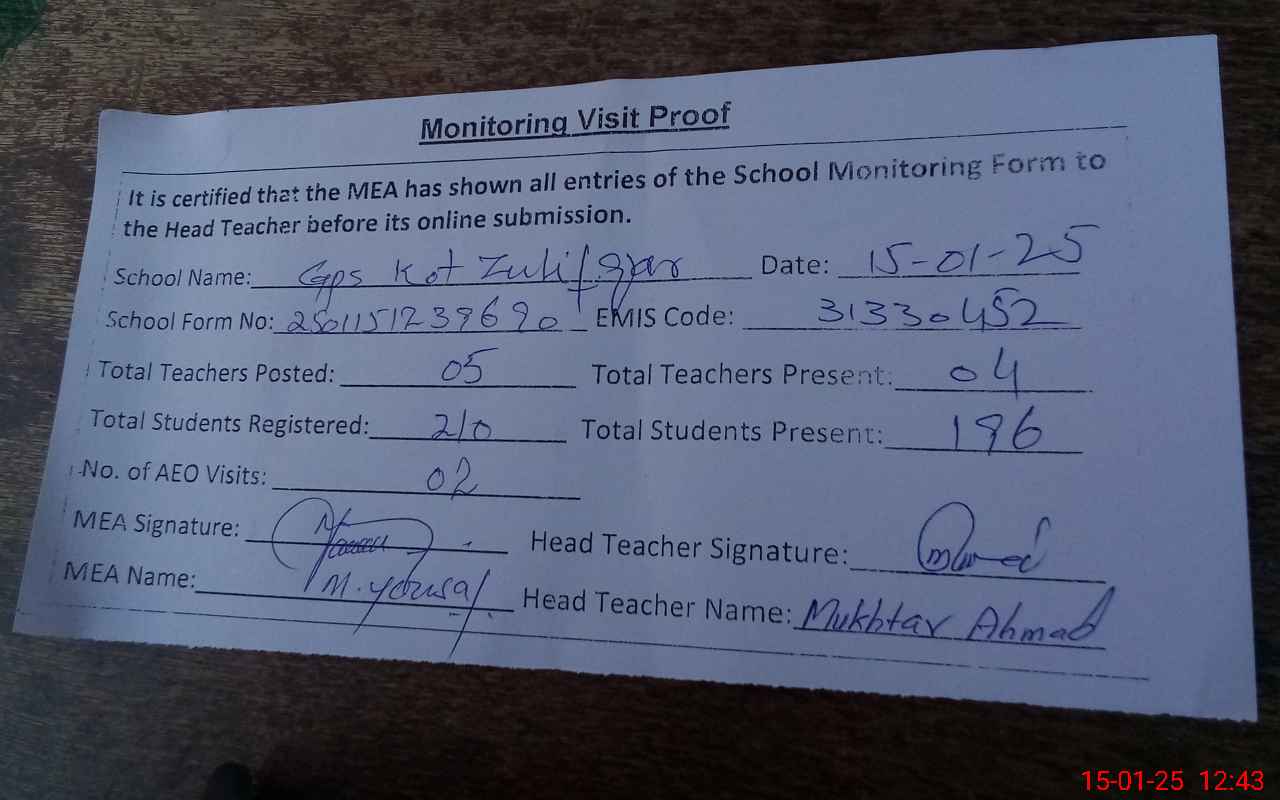 Monitoring Visit Proof
It is certified that the MEA has shown all entries of the School Monitoring Form to
the Head Teacher before its online submission.
School Name: Gps Kot Zulifqar Date: 15-01-25
School Form No: 2501151239690 EMIS Code: 31330452
Total Teachers Posted: 05 Total Teachers Present: 04
Total Students Registered: 210 Total Students Present: 196
No. of AEO Visits: 02
MEA Signature: Head Teacher Signature:
MEA Name: M. yousaf Head Teacher Name: Mukhtar Ahmad
15-01-25 12:43